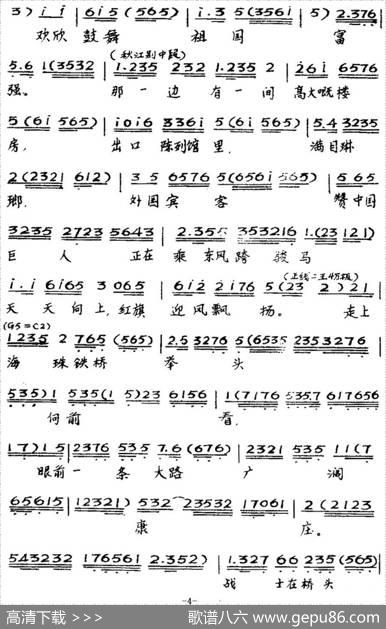 3) i i | 6 i 5 (565) | i. 3 5 (3561 | 5) 2.376 |
欢欣 鼓舞 祖 国 富
(秋江别中段)
5.6 1(3532 | 1.235 232 1.235 2 | 26i 6576
强。 那一边 有一间 高大嘅楼
5 (6i 565) | i0i6 336i 5 (6i 565) | 5.4 3235
房, 出口陈列馆里, 满目琳
2(2321 612) | 35 6576 5(656i 565) | 5 65
瑯, 外国宾客 赞中国
3235 2723 5643 | 2.355 353216 1.(23 121)
巨人 正在 乘东风跨骏马
(上线二王4万板)
i. i 6i65 3 065 | 6i2 2i76 5(23 2)21 |
天天向上,红旗 迎风飘扬。 走上
(G5=C2)
1235 2 765 (565) | 2.5 3276 5(6535 2353276
海珠铁桥 桥头
535)1 535(15)23 6156 | 1(7176 535.7 617656
向前 看,
17)15 | 2376 535 7.6(676) | 2321 535 11(7
眼前一条大路 广阔
65615 | 12321) 532 23532 17061 | 2(2123
康 庄。
543232 176561 2.352) | 1.327 66 235(565) |
战士在桥头
-4-
高清下载 >>> 歌谱八六 www.gepu86.com